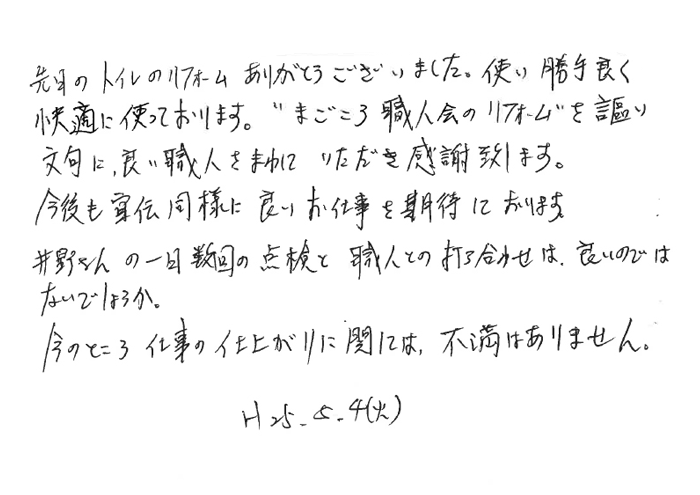 先日のトイレのリフォームありがとうございました。使い勝手良く
快適に使っております。"まごころ職人会のリフォーム"を謳い
文句に、良い職人をまわして いただき感謝致します。
今後も宣伝同様に良いお仕事を期待しております
井野さんの一日数回の点検と職人との打ち合わせは、良いのでは
ないでしょうか。
今のところ仕事の仕上がりに関しては、不満はありません。
H25.5.4(火)